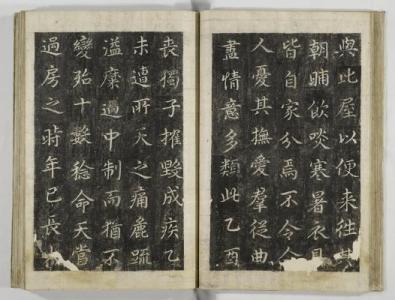 與此屋以便来往其
朝晡飲啖寒暑衣
皆自家分焉不令令
人憂其撫愛羣從曲
盡情意多類此乙酉
丧獨子摧毀成疾乙
未遭所天之痛麁踈
溢糜過中制而猶不
變殆十數稔命夭嘗
過房之時年已長